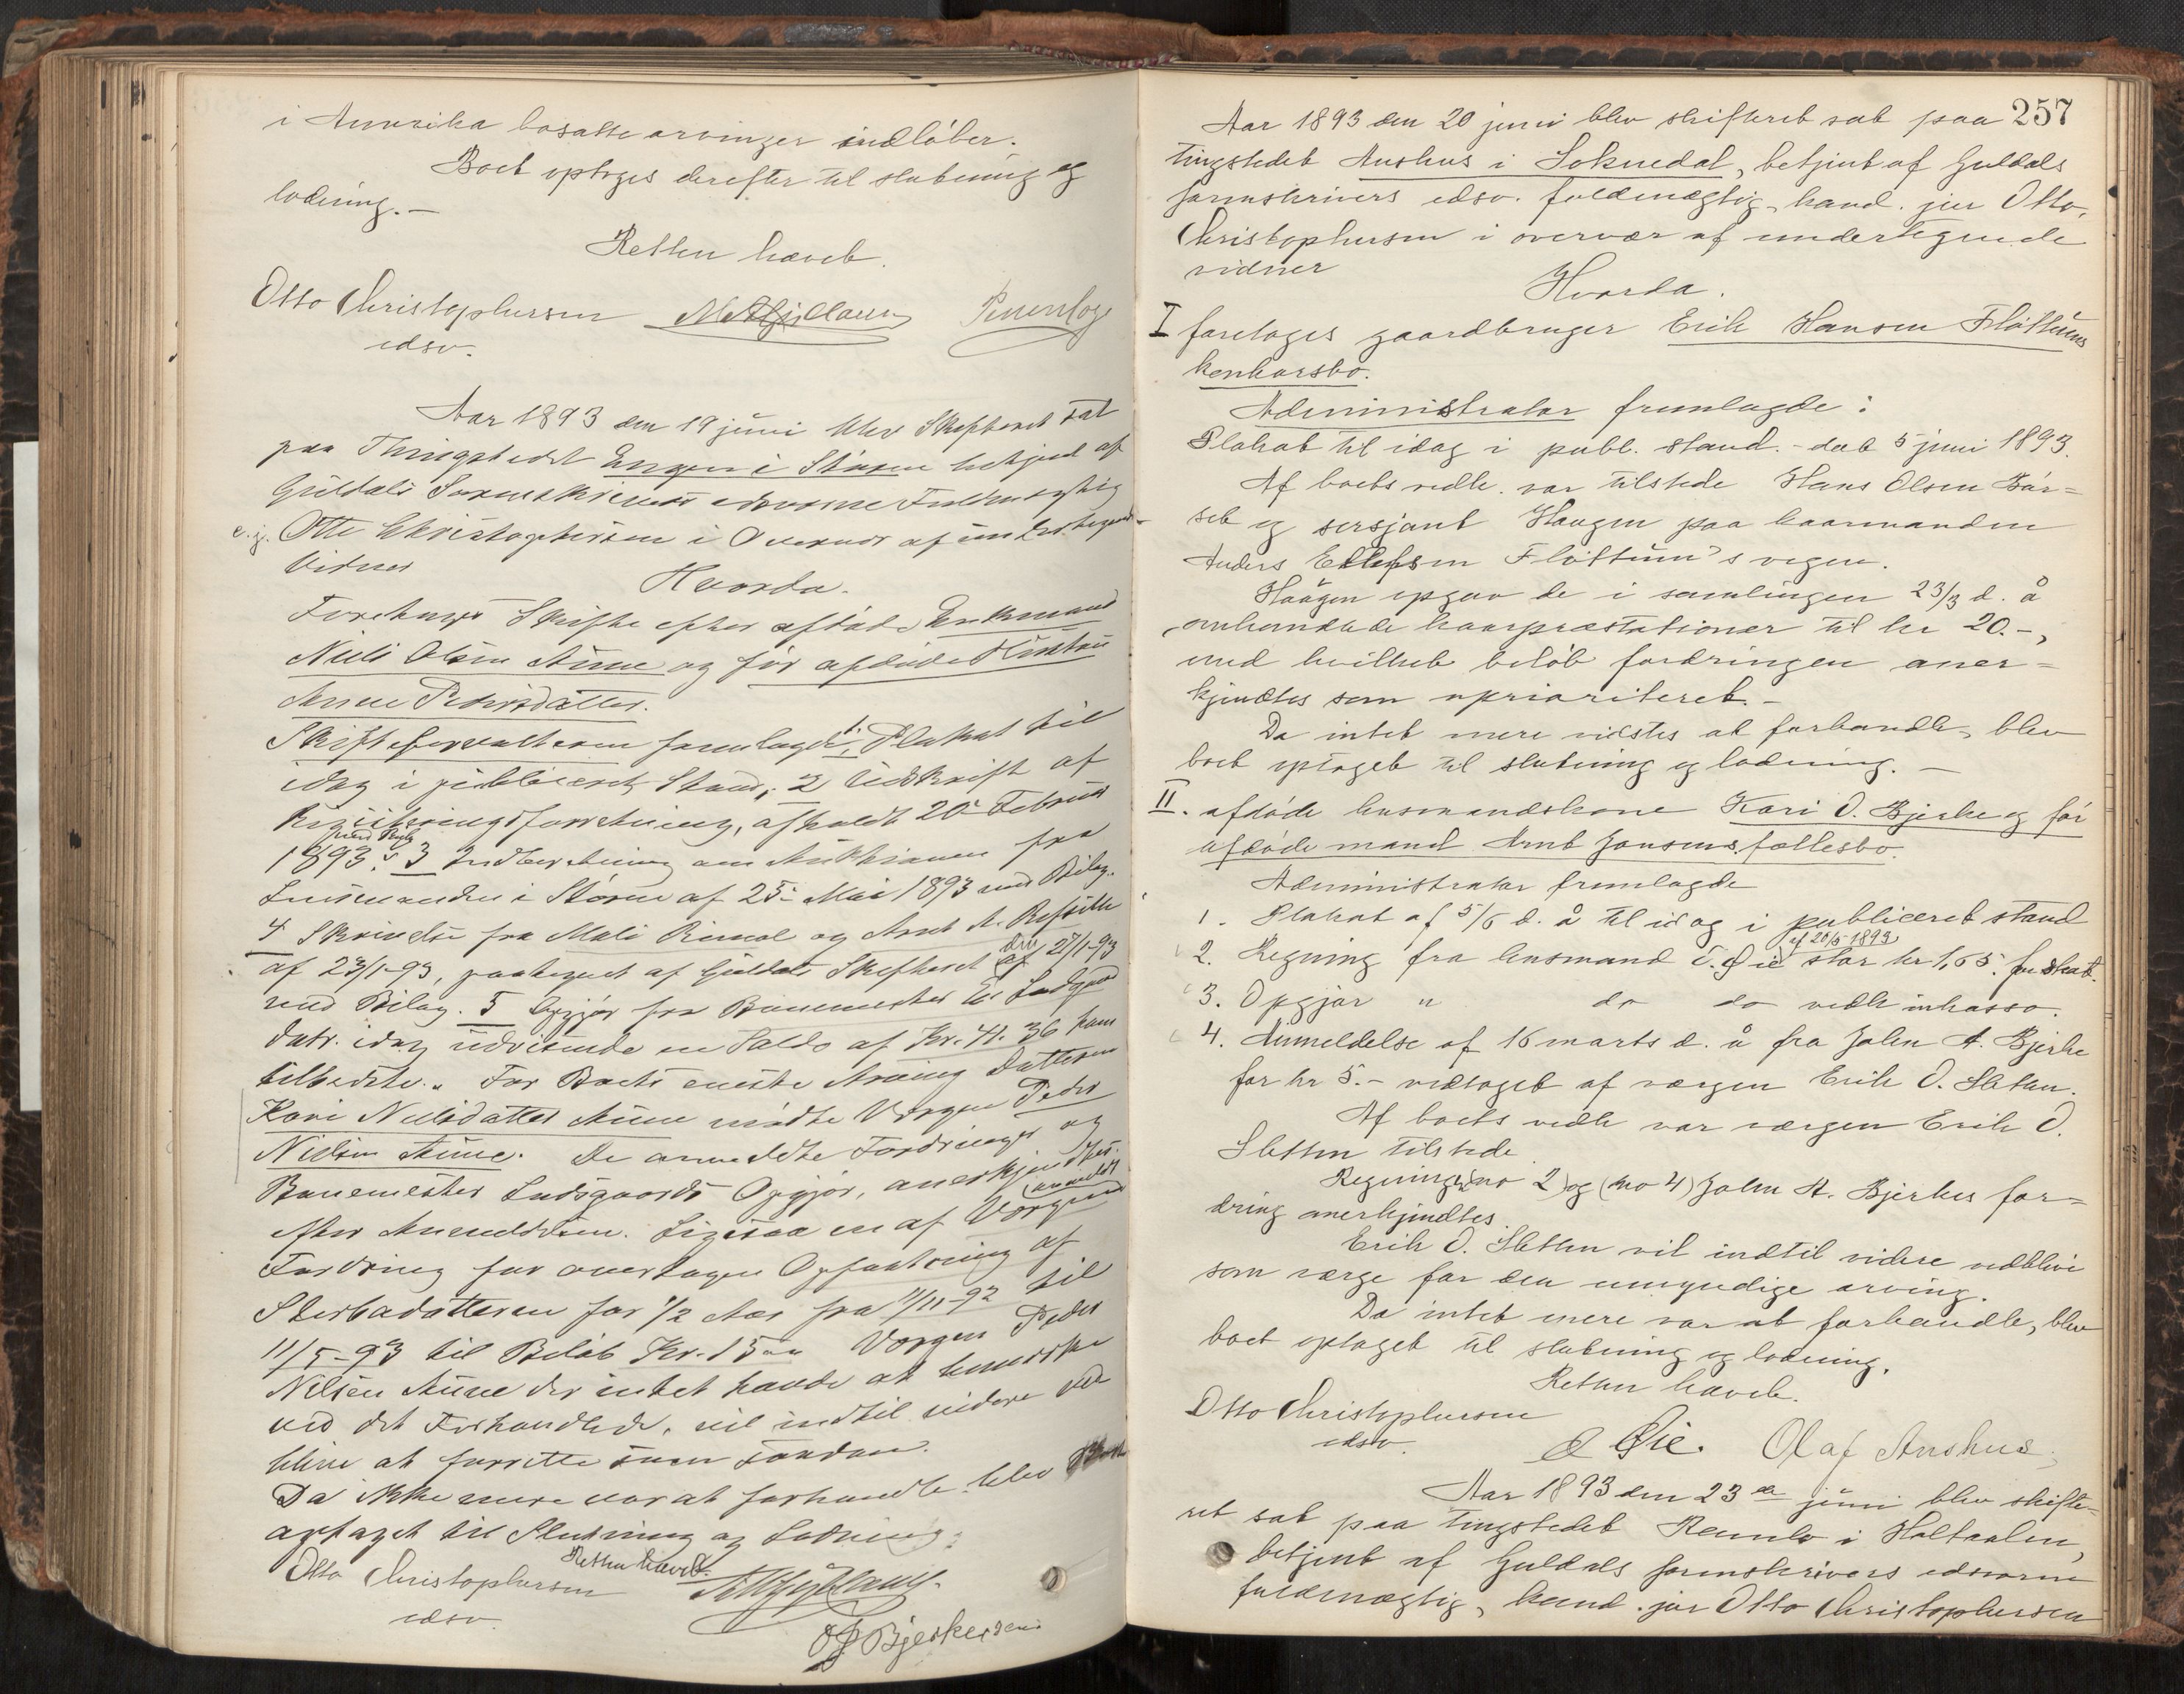 i Amerika bosatte arvinger indløber.
Boet optoges derefter til slutning og
lodning.—
Retten hævet.
Otto Christophersen
edsv.
Aar 1893 den 19 juni blev Skifteret sat
paa Thingstedet Engen i Støren betjent af
Guldals Sorenskrivers edsvorne Fuldmægtig
c. j. Otto Christophersen i Overvær af undertegnede
Vidner
Hvorda.
Foretages Skifte efter afdøde Enkemand
Niels Olsen Aune og før afdøde Hustru
Anne Pedersdatter.
Skifteforvalteren fremlagde 1. Plakat til
idag i publiceret Stand, 2 Udskrift af
Registreringsforretning, afholdt 20 Februar
1893, 3 Indberetning om Auktionen fra
Lensmanden i Støren af 25 Mai 1893 med Bilag.
4 Skrivelse fra Mali Rimol og Arnt A.
af 23/1-93, paategnet af Guldals Skifteret den 27/1-93
med Bilag. 5 Opgjør fra Banemester Lndgaard
datr. idag udvisende en Saldo af Kr. 41. 36 som
tilbedste. For Boets eneste Arving Datteren
Kari Nielsdatter Aune mødte Værgen Peder
Nielsen Aune. De anmeldte Fordringer og
Banemester Lndsgaards Opgjør, anerkjendtes
efter Anmeldelsen. Ligesaa en af Værgen anmeldt
Fordring for overtagen Opfostring af
Sterbodatteren for 1/2 Aar fra 11/11-92 til
11/5-93 til Beløb Kr. 15 Værgen Peder
Nilsen Aune der intet havde at bemærke
ved det Forhandlede, vil indtil videre ved
blive at forrette som saadan.
Da ikke mere var at forhandle blev Boet
optaget til Slutning og Lodning.
Retten hævet.
Otto Christophersen
edsv.
O J Bjerkesen
257
Aar 1893 den 20 juni blev skifteret sat paa
tingstedet Aushus i Soknedal, betjent af Guldals
sorenskrivers edsv. fuldmægtig, kand. jur Otto
Christophersen i overvær af undertegnede
vidner
Hvorda.
I foretages gaardbruger Erik Hansen Fløttums
konkursbo.
Administrator fremlagde:
Plakat til idag i publ. stand.- dat 5 juni 1893.
Af boets vedk. var tilstede Hans Olsen Bår=
set og sersjant Haugen paa kaarmanden
Anders Ellefsen Fløttum's vegne.
Haugen opgav de i samlingen 23/3 d. å
omhandlede kaarpræstationer til kr 20.-,
med hvilket beløb fordringen aner=
kjendtes som uprioriteret.-
Da intet mere vidstes at forhandle, blev
boet optaget til slutning og lodning.—
II. afdøde husmandskone Kari O. Bjerke og før
afdøde mand Arnt Jonsens fællesbo.
Administrator fremlagde
1. Plakat af 5/6 d. å til idag i publiceret stand
af 20/5 1893
2. Regning fra husmand E. Øie stor kr 1,65. for skat.
3. Opgjør " do do vedk inkasso.
4. Anmeldelse af 16 marts d. å fra John A. Bjerke
for kr 5.- vedtaget af værgen Erik O. Sletten.
Af boets vedk var værgen Erik O.
Sletten tilstede.
Regningen (no 2) og (no 4) John A. Bjerkes for=
dring anerkjendtes.
Erik O. Sletten vil indtil videre vedblive
som værge for den umyndige arving.
Da intet mere var at forhandle, blev
boet optaget til slutning og lodning.
Retten hævet.
Otto Christophersen
edsv.
O Øie. Olaf Aushus.
Aar 1893 den 23de juni blev skifte-
ret sat paa tingstedet Ramlo i Holtaalen,
betjent af Guldals sorenskrivers edsvorne
fuldmægtig, kand. jur Otto Christophersen